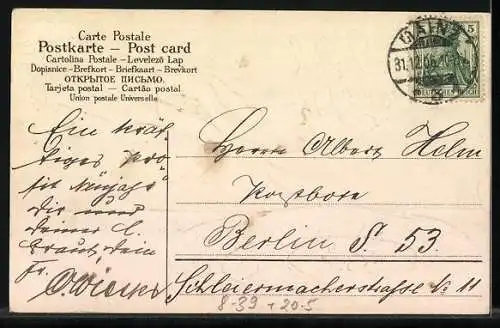 Carte Postale
Postkarte – Post card
Cartolina Postale – Levelező Lap
Dopisnice – Brefkort – Briefkaart – Brevkort
ОТКРЫТОЕ ПИСЬМО.
Tarjeta postal – Cartão postal
Union postale Universelle
MAINZ
31.12.06
5
DEUTSCHES REICH
Ein kräf-
tiges pro-
sit Neujahr
Dir und
deiner l.
Braut, dein
Fr.
Herrn Albert Helm
Postbote
Berlin S 53.
Schleiermacherstraße No 11
8-39 + 20-5